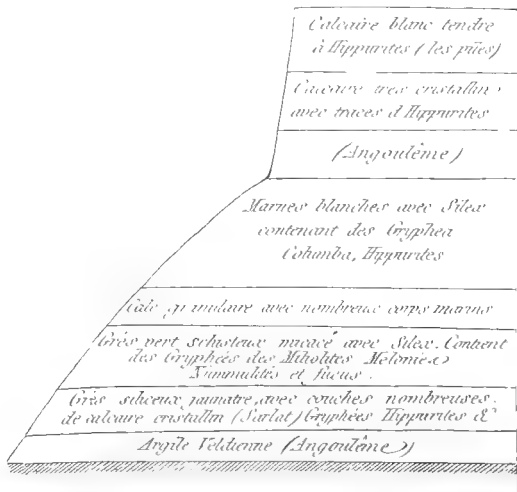 Calcaire blanc tendre
à Hippurites (les pûes)
Calcaire tres cristallin
avec traces d'Hippurites
(Angoulême)
Marnes blanches avec Silex
contenant des Gryphea
Columba, Hippurites
Calc gr nulaire avec nombreux corps marins
Grès vert schisteux micacé avec Silex. Contient
des Gryphées des Miliolites Melonies
Nummulites et fucus.
Grès siliceux jaunatre, avec couches nombreuses.
de calcaire cristallin (Sarlat) Gryphées Hippurites &c
Argile Veldienne (Angoulême)